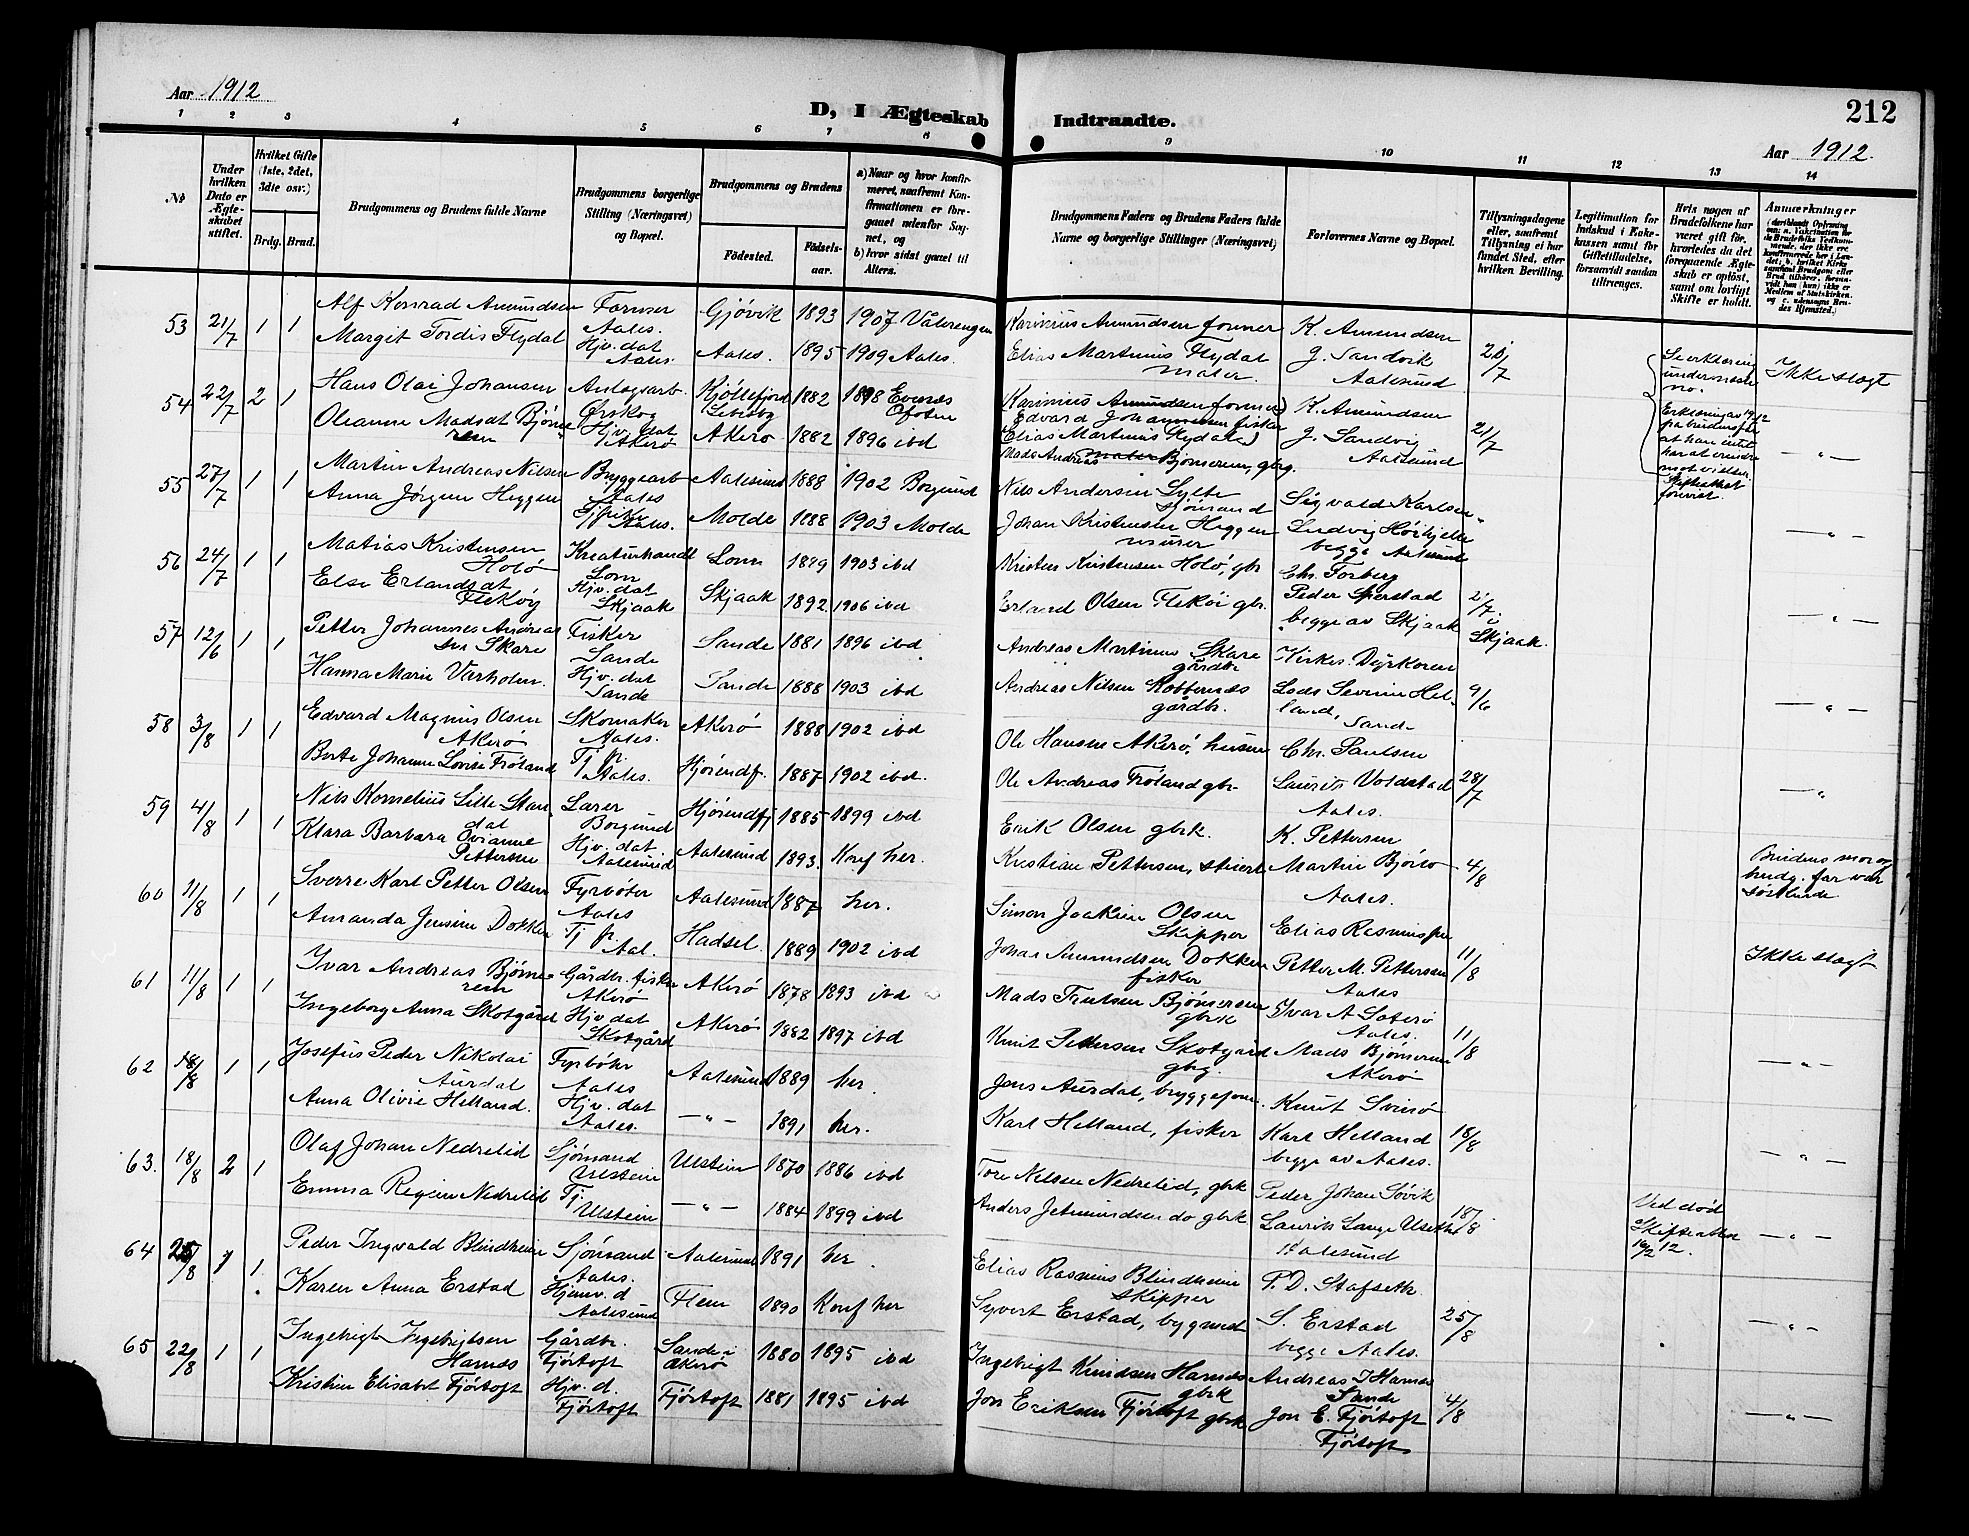 Aar 1912
D, I Ægteskab Indtraadte.
212
Aar 1912.
1 2 3 4 5 6 7 8 9 10 11 12 13 14
No
Under hvilken Dato er Ægteskabet stiftet.
Hvilket Gifte (1ste, 2det, 3die osv.)
Brdg. Brud.
Brudgommens og Brudens fulde Navne
Brudgommens borgerlige Stilling (Næringsvei) og Bopæl.
Brudgommens og Brudens
Födested.
Födselsaar.
a) Naar og hvor konfirmeret, saafremt Konfirmationen er foregaaet udenfor Sognet, og
b) hvor sidst gaaet til Alters.
Brudgommens Faders og Brudens Faders fulde Navne og borgerlige Stillinger (Næringsvei)
Forlovernes Navne og Bopæl.
Tillysningsdagene eller, saafremt Tillysning ei har fundet Sted, efter hvilken Bevilling.
Legitimation for Indskud i Enkekassen samt for Giftetilladelse, forsaavidt saadan tiltrænges.
Hvis nogen af Brudefolkene har været gift för, hvorledes da det foregaaende Ægteskab er oplöst, samt om lovligt Skifte er holdt.
Anmærkninger
53 21/7 1 1 Alf Konrad Amundsen Former Aales. Gjövik 1893 1907 Vålerengen Karinius Amundsen former K. Amundsen
Margit Tordis Flydal Hjv. dat Aales. Aales. 1895 1909 Aales. Elias Martinus Flydal maler. J. Sandvik Aalesund Ikke slegt
54 22/7 2 1 Hans Olai Johansen Anlegsarb Ørskog Kjöllefjord Lebesby 1882 1898 Evenes Ofoten Edvard Johannesen fisker K. Amundsen
Oleanne Madsdat Bjömerem Hjv. dat Akerö Akerö 1882 1896 ibd Mads Andreas Bjömerem, gbrg. J. Sandvig Aalesund 21/7 - " -
55 27/7 1 1 Martin Andreas Nilsen Bryggearb Aales Aalesund 1888 1902 Borgund Nils Andersen Sylte Sigvald Karlsen
Anna Jörgine Heggem Aales. Molde 1888 1903 Molde Johan Kristensen Heggem murer Ludvig begge Aalesund - " -
56 24/7 1 1 Matias Kristensen Holö Kreaturhandl Lom Lom 1879 1903 ibd Kristen Kristensen Holö, gbr Chr. Forberg
Else Erlandsdat Fleköy Hjv. dat Skjaak Skjaak 1892 1906 ibd Erland Olsen Fleköi gbr. Peder Sperstad begge av Skjaak 2/7 i Skjaak. - " -
57 12/6 1 1 Petter Johannes Andreassen Skare Fisker Sande Sande 1881 1896 ibd Andreas Martinus Skare gårdbr Kirkes. Dyrkoren
Hanna Marie Varholm. Hjv. dat Sande Sande 1888 1903 ibd Andreas Nilsen Kobbernes gårdbr. Lods Severin Helland, Sande 9/6 - " -
58 3/8 1 1 Edvard Magnus Olsen Akerö Skomaker Aales. Akerö 1888 1902 ibd Ole Hansen Akerö, husm Chr. Paulsen
Berte Johanne Lovise Fröland Tj. p. Aales. Hjörendf. 1887 1902 ibd. Ole Andreas Fröland gbr. Laurits Voldstad Aales. 28/7 - " -
59 4/8 1 1 Nils Kornelius Lille Standal Lærer Borgund Hjörendfj 1885 1899 ibd Erik Olsen gbrk. K. Pettersen
Klara Barbara Ovianne Pettersen Hjv. dat. Aalesund Aalesund 1893. Konf her. Kristian Pettersen, stuert Martin Björlo Aales. 4/8 Brudens mor og brudg. far var söskende
60 11/8 1 1 Sverre Karl Petter Olsen Fyrböter Aales Aalesund 1887 her. Simon Joakim Olsen Skipper Elias Rasmussen
Amanda Jensine Dokken Tj. p. Aal. Hadsel. 1889 1902 ibd Johan Amundsen Dokken fisker Petter M. Pettersen Aales 11/8 Ikke slegt
61 11/8 1 1 Ivar Andreas Bjömerem Gårdbr. fisker Akerö Akerö 1878 1893 ibd Mads Trulsen Bjömerem gbrk Ivar A. Sæterö Aales.
Ingeborg Anna Skotgård Hjv. dat Skotgård Akerö 1882 1897 ibd Knut Pedersen Skotgård gbrg. Mads Bjömerem Akerö 11/8 - " -
62 18/8 1 1 Josefus Peder Nikolai Aurdal Fyrböter Aales Aalesund 1889 her. Jens Aurdal, bryggeform. Knut Svinö
Anna Olivie Helland. Hjv. dat Aales. - " - 1891 her. Karl Helland, fisker Karl Helland begge av Aales. 18/8 - " -
63. 18/8 2 1 Olaf Johan Nedrelid Sjömand Ulstein Ulstein 1870 1886 ibd Tore Nilsen Nedrelid, gbrk Peder Johan Sövik
Emma Regine Nedrelid Tj. Ulstein - " - 1884 1899 ibd Anders Jetmundsen do gbrk Laurits Lange Ulseth Aalesund 18/8 Ved död Skifteattest 16/2 12. - " -
64 25/8 1 1. Peder Ingvald Blindheim Sjömand Aales. Aalesund 1891 her. Elias Rasmus Blindheim Skipper P. D. Stafseth.
Karen Anna Erstad Hjemv. d Aalesund Hem 1890 Konf her Syvert Erstad, bygmest S. Erstad begge Aales. 25/8 - " -
65 22/8 1 1 Ingebrigt Ingebrigtsen Harnes Gårdbr. Fjörtoft Sande i Akerö 1880 1895 ibd Ingebrigt Knudsen Harnes gbrk Andreas I Harnes Sande
Kristine Elisabet Fjörtoft Hjv. d. Fjörtoft Fjörtoft 1881 1895 ibd Jon Eriksen Fjörtoft gbrk Jon E. Fjörtoft Fjörtoft 4/8 - " -